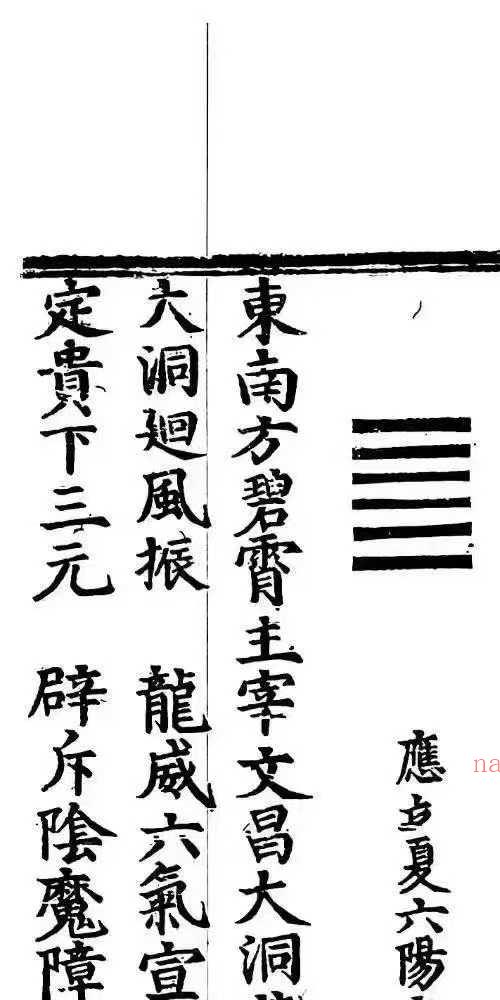 應立夏六陽
東南方碧霄主宰文昌大洞
大洞廻風振　龍威六氣宣
定貴下三元　辟斥陰魔障
na